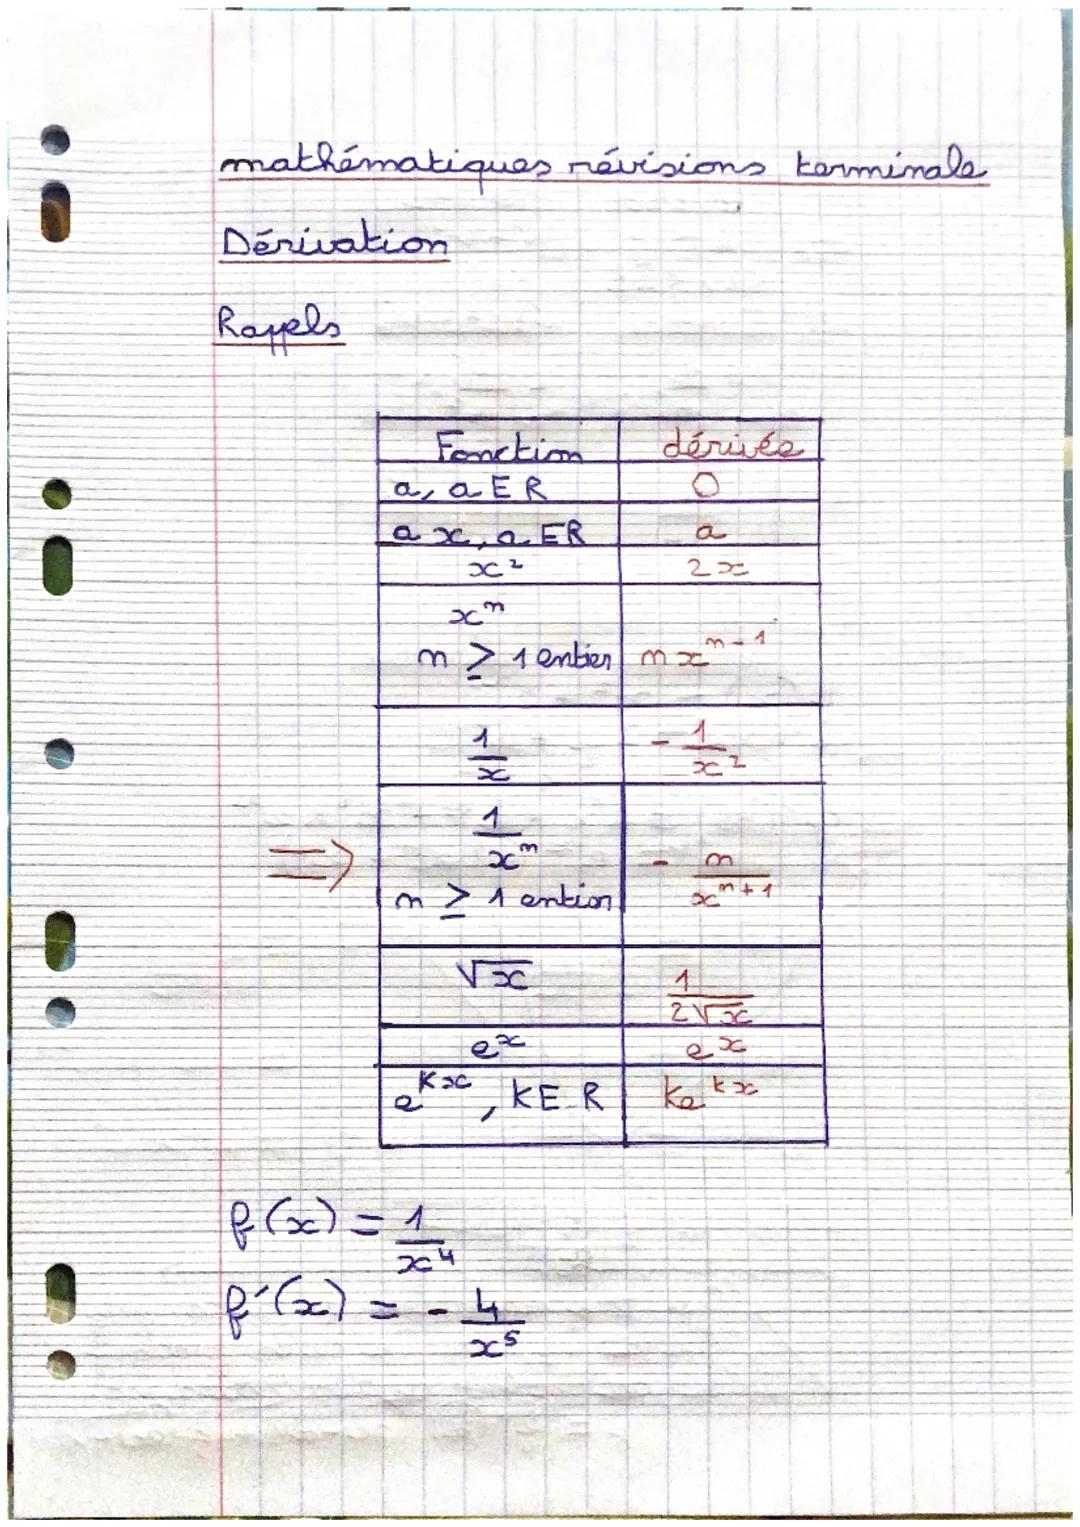 mathématiques révisions terminale
Dérivation
Rappels
Fonction dérivée
a, a ∈ R 0
ax, a ∈ R a
x² 2x
xⁿ
n ≥ 1 entier nxⁿ⁻¹
1/x - 1/x²
⇒ 1/xⁿ - n/xⁿ⁺¹
n ≥ 1 entier
√x 1/(2√x)
eˣ eˣ
e^{kx}, k ∈ R ke^{kx}
f(x) = 1/x⁴
f'(x) = - 4/x⁵